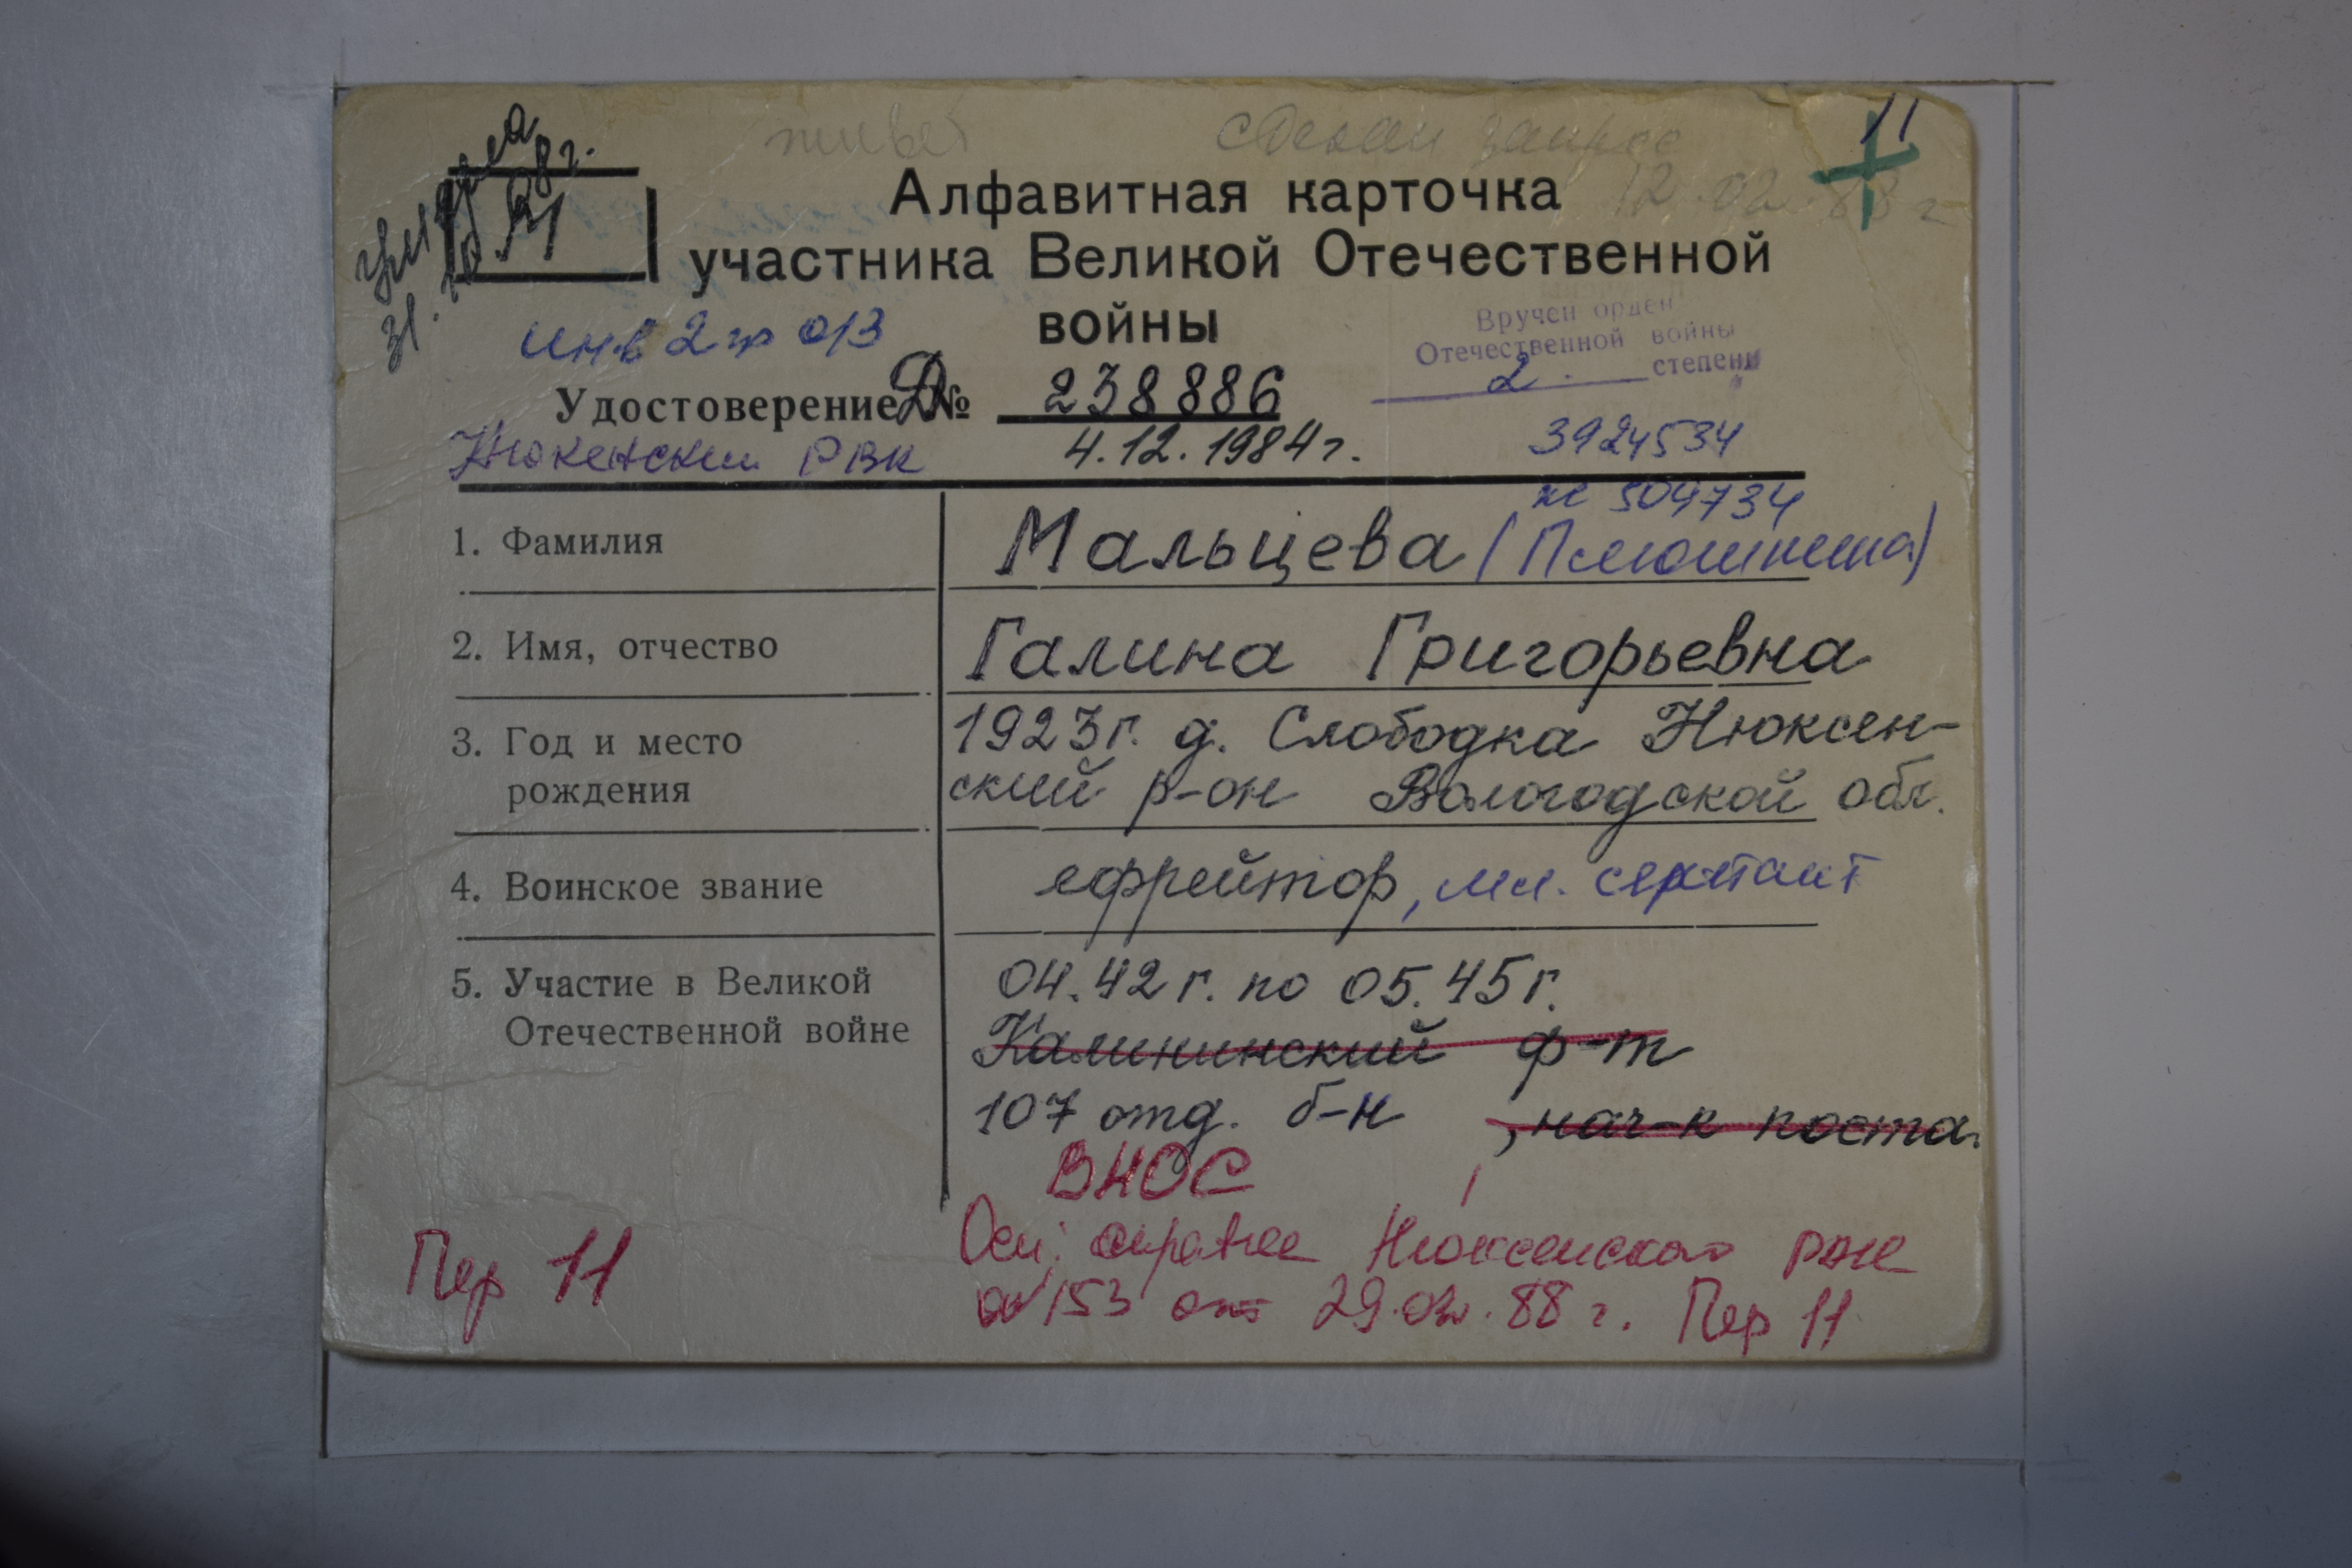 живет сделан запрос
12.02.88 г
11
умерла
31.10.98г.
М
Алфавитная карточка
участника Великой Отечественной
войны
инв 2 гр о/з
Вручен орден
Отечественной войны
2. степени
Удостоверение Д № 238886
Нюксенский РВК 4.12.1984 г. 3924534
№ 504734
1. Фамилия Мальцева (Плюшкина)
2. Имя, отчество Галина Григорьевна
3. Год и место 1923 г. д. Слободка Нюксен-
рождения ский р-он Вологодской обл.
4. Воинское звание ефрейтор, мл. сержант
5. Участие в Великой 04.42 г. по 05.45 г.
Отечественной войне Калининский ф-т
107 отд. б-н , нач-к поста.
ВНОС
Осн: Нюксенского РВК
№ 153 от 29.02.88 г. Пер 11
Пер 11